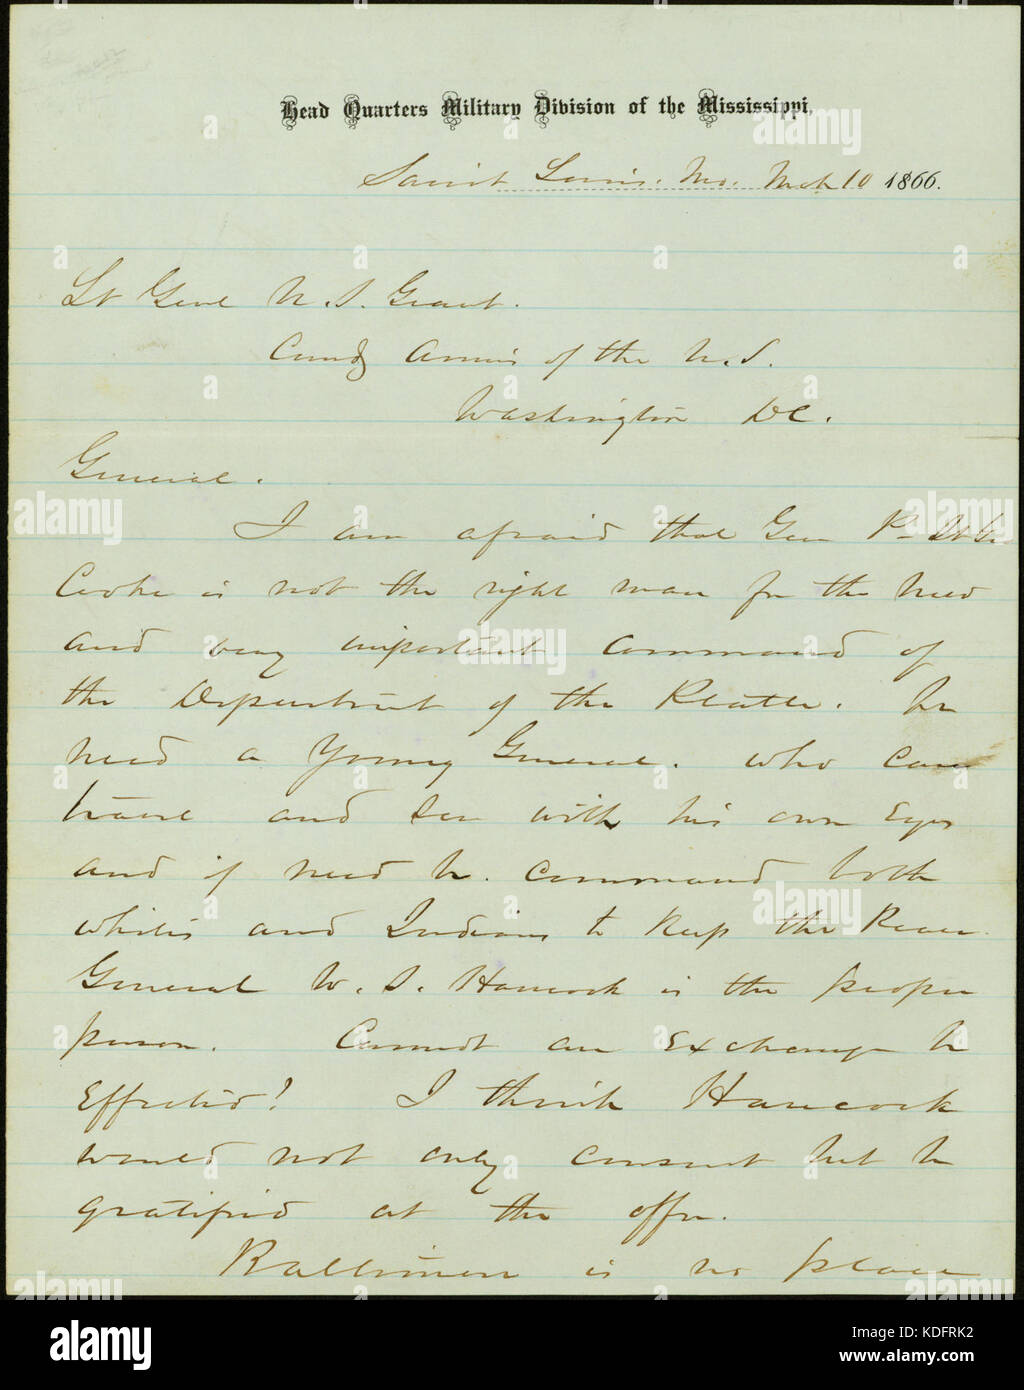 Head Quarters Military Division of the Mississippi,
Saint Louis, Mo. Mch 10 1866.
Lt Genl U. S. Grant.
Comdg Armies of the U.S.
Washington DC.
General.
I am afraid that Gen P. St Geo
Cooke is not the right man for the new
and very important command of
the Department of the Platte. We
need a Young General. who can
travel and see with his own Eyes
and if need be. command both
whites and Indians to keep the Peace.
General W. S. Hancock is the proper
person. Cannot an Exchange be
Effected? I think Hancock
would not only consent but be
gratified at the offer.
Baltimore is no place
alamy
a
alamy
KDFRK2
www.alamy.com